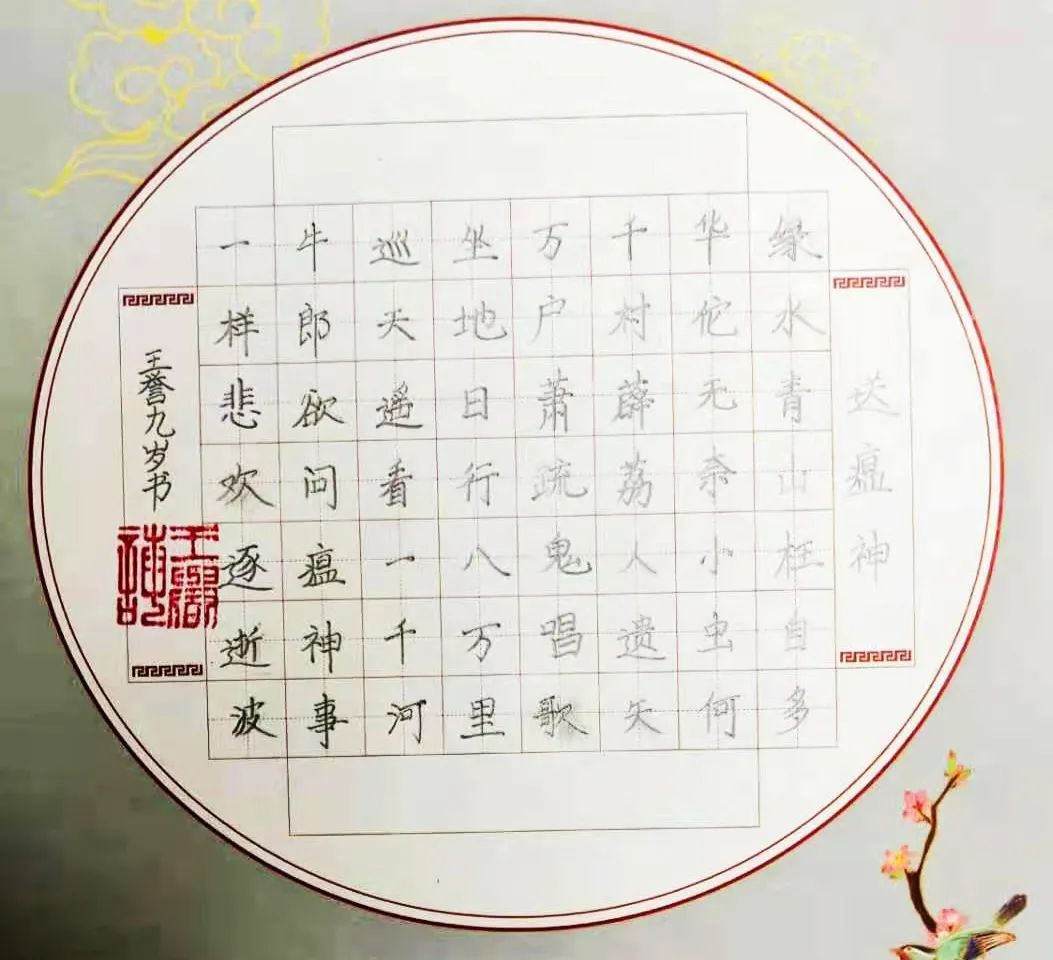 送瘟神
绿水青山枉自多
华佗无奈小虫何
千村薜荔人遗矢
万户萧疏鬼唱歌
坐地日行八万里
巡天遥看一千河
牛郎欲问瘟神事
一样悲欢逐逝波
王誉九岁书